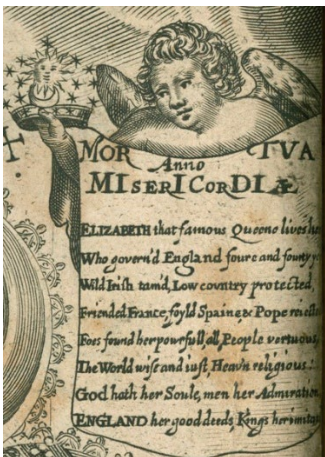 MOR TVA
Anno
MISERICORDIÆ
ELIZABETH that famous Queene lives
Who govern'd England foure and fourty
Wild Irish tam'd, Low country protected,
Friended France, foyld Spaine, & Pope
Foes found her powrfull all, People vertuous,
The World wise and iust, Heav'n religious
God hath her Soule, men her Admiration
ENGLAND her good deeds, Kings her